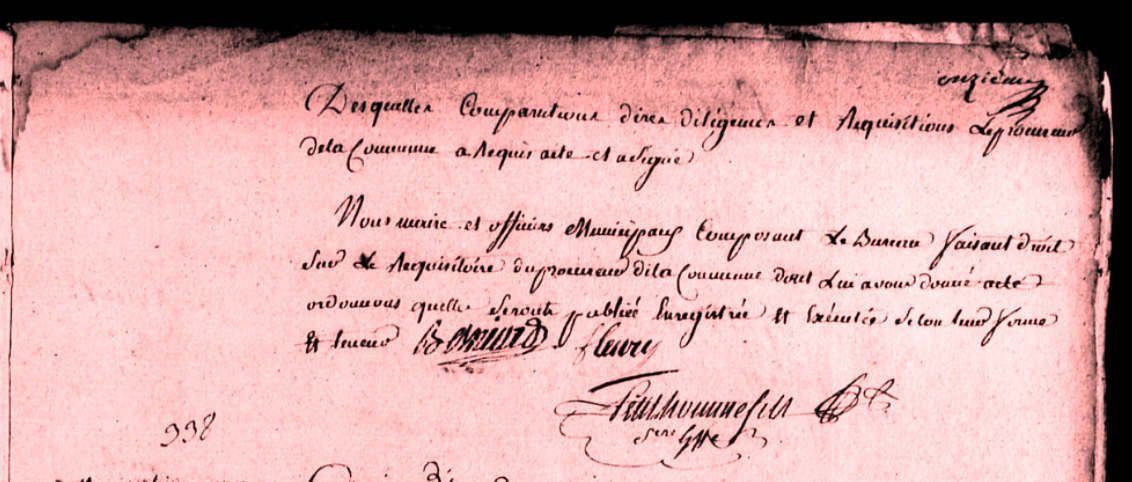 onzième
Desquelles Comparutions dires diligences et Requisitions Le procureur
de la Commune a Requis acte et a Signé
Nous maire et officiers Municipaux Composant Le Bureau faisant droit
sur Le Requisitoire du procureur de la Commune dont Lui avons donné acte
ordonnons quelles seront publiée Enregistrée Et Exécutée selon leur forme
Et teneur fleury
petithomme fils
Sre Gffe
338